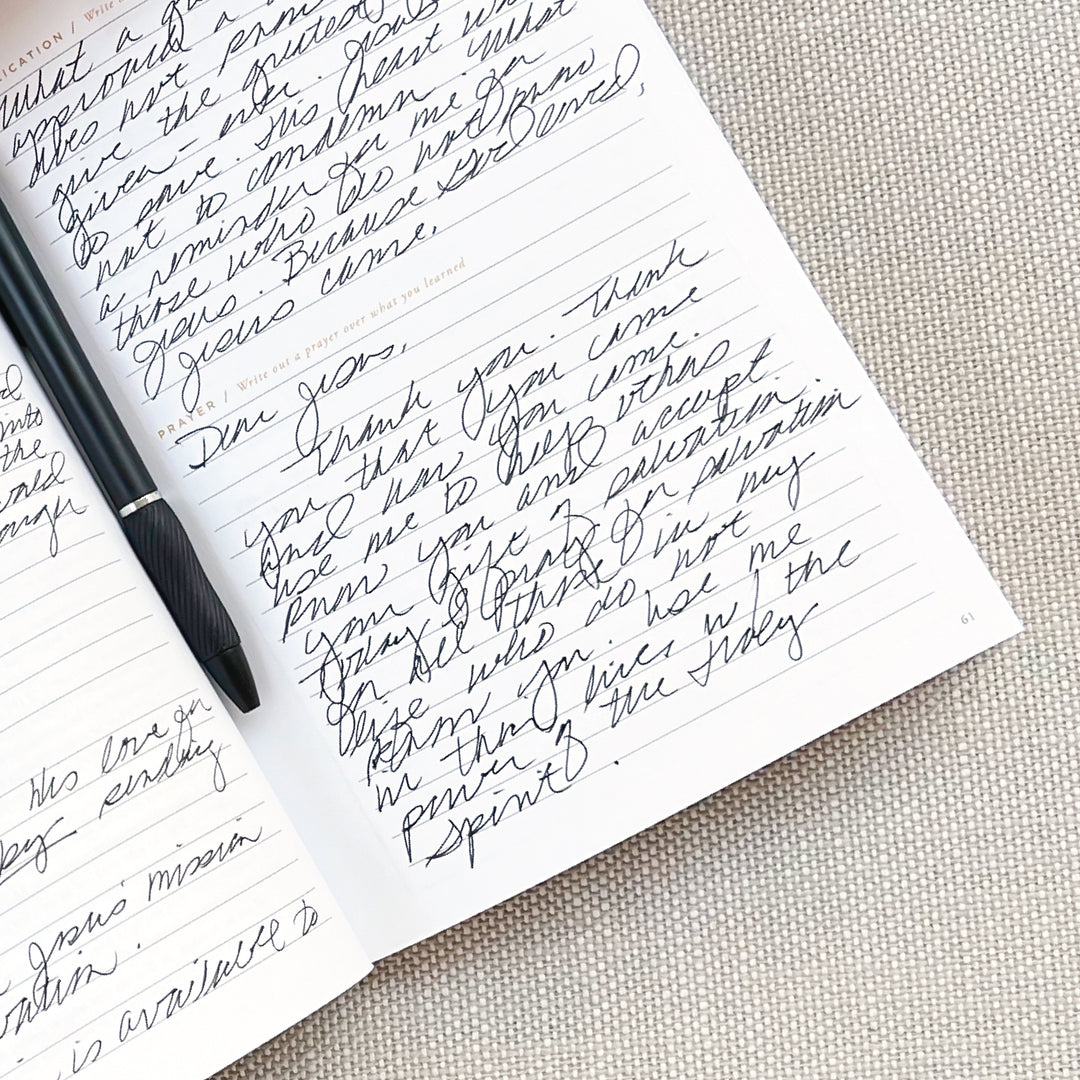 LICATION / Write
What a
approval a
does not
give the greatest
given – ever. Jesus
to save. His heart was
not to condemn. What
a reminder for me for
those who do not know
Jesus. Because God loved,
Jesus came.
PRAYER / Write out a prayer over what you learned
Dear Jesus,
Thank you. Thank
you that you came
and how you came.
Use me to help others
know you and accept
your gift of salvation.
Today I pray for salvation
for all those in my
life who do not
know you. Use me
in their lives w/ the
power of the Holy
Spirit.
61
into
the
world
His love for
sending
Jesus' mission
is available to